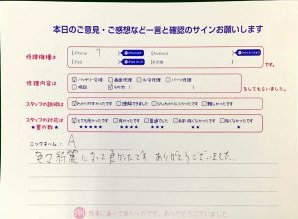 本日のご意見・ご感想など一言と確認のサインお願いします
修理機種は
iPhone 7
Android
iPad
その他
です。
修理内容は
バッテリー交換 画面修理 水没修理 パーツ修理
をしてもらいました。
スタッフの説明は
わかりやすかったです 理解できました 少しわかりにくかったです 難しかったです
スタッフの対応は
★星の数★
とても良かったです 良かったです 普通でした
★★★★★ ★★★★ ★★★ ★★ ★
ニックネーム: A
色々綺麗になって良かったです ありがとうございました